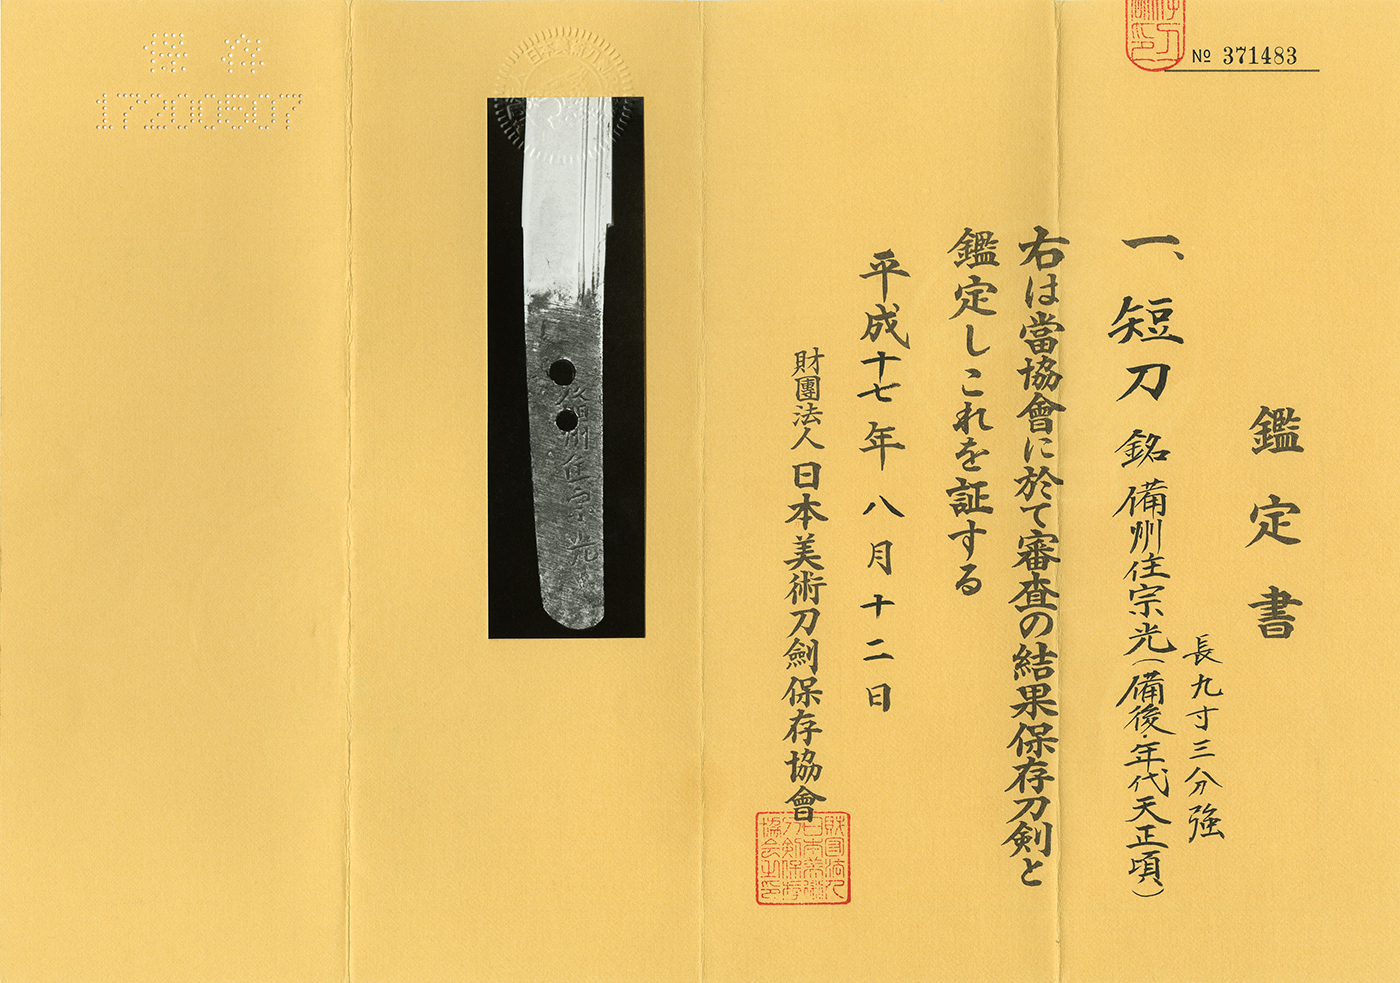 № 371483
鑑定書
一、短刀 銘 備州住宗光(備後・年代天正頃)
長九寸三分強
右は當協會に於て審査の結果保存刀剣と
鑑定しこれを証する
平成十七年八月十二日
財團法人 日本美術刀劍保存協會
備州住宗光
保存
17200507